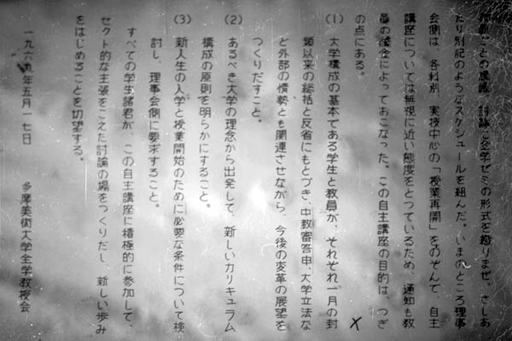 講義などの 講座と全学ゼミの形式を織りまぜ、さしあ
たり別記のようなスケジュールを組んだ。しまのところ理事
会側は、各科別、実技中心の「授業再開」をのぞんで、自主
講座については無視に近い態度をとっているため、通知も教
員の醵金によっておこなった。この自主講座の目的は、つぎ
の点にある。
(1) 大学構成の基本である学生と教員が、それぞれ一月の封
鎖以来の総括と反省にもとづき、中教審答申、大学立法な
ど外部の情勢とも関連させながら、今後の変革の展望を
つくりだすこと。
(2) あるべき大学の理念から出発して、新しいカリキュラム
構成の原則を明らかにすること。
(3) 新入生の入学と授業開始のために必要な条件について検
討し、理事会側に要求すること。
すべての学生諸君が、この自主講座に積極的に参加して、
セクト的な主張をこえた討論の場をつくりだし、新しい歩み
をはじめることを切望する。
一九六九年五月一七日 多摩美術大学全学教授会